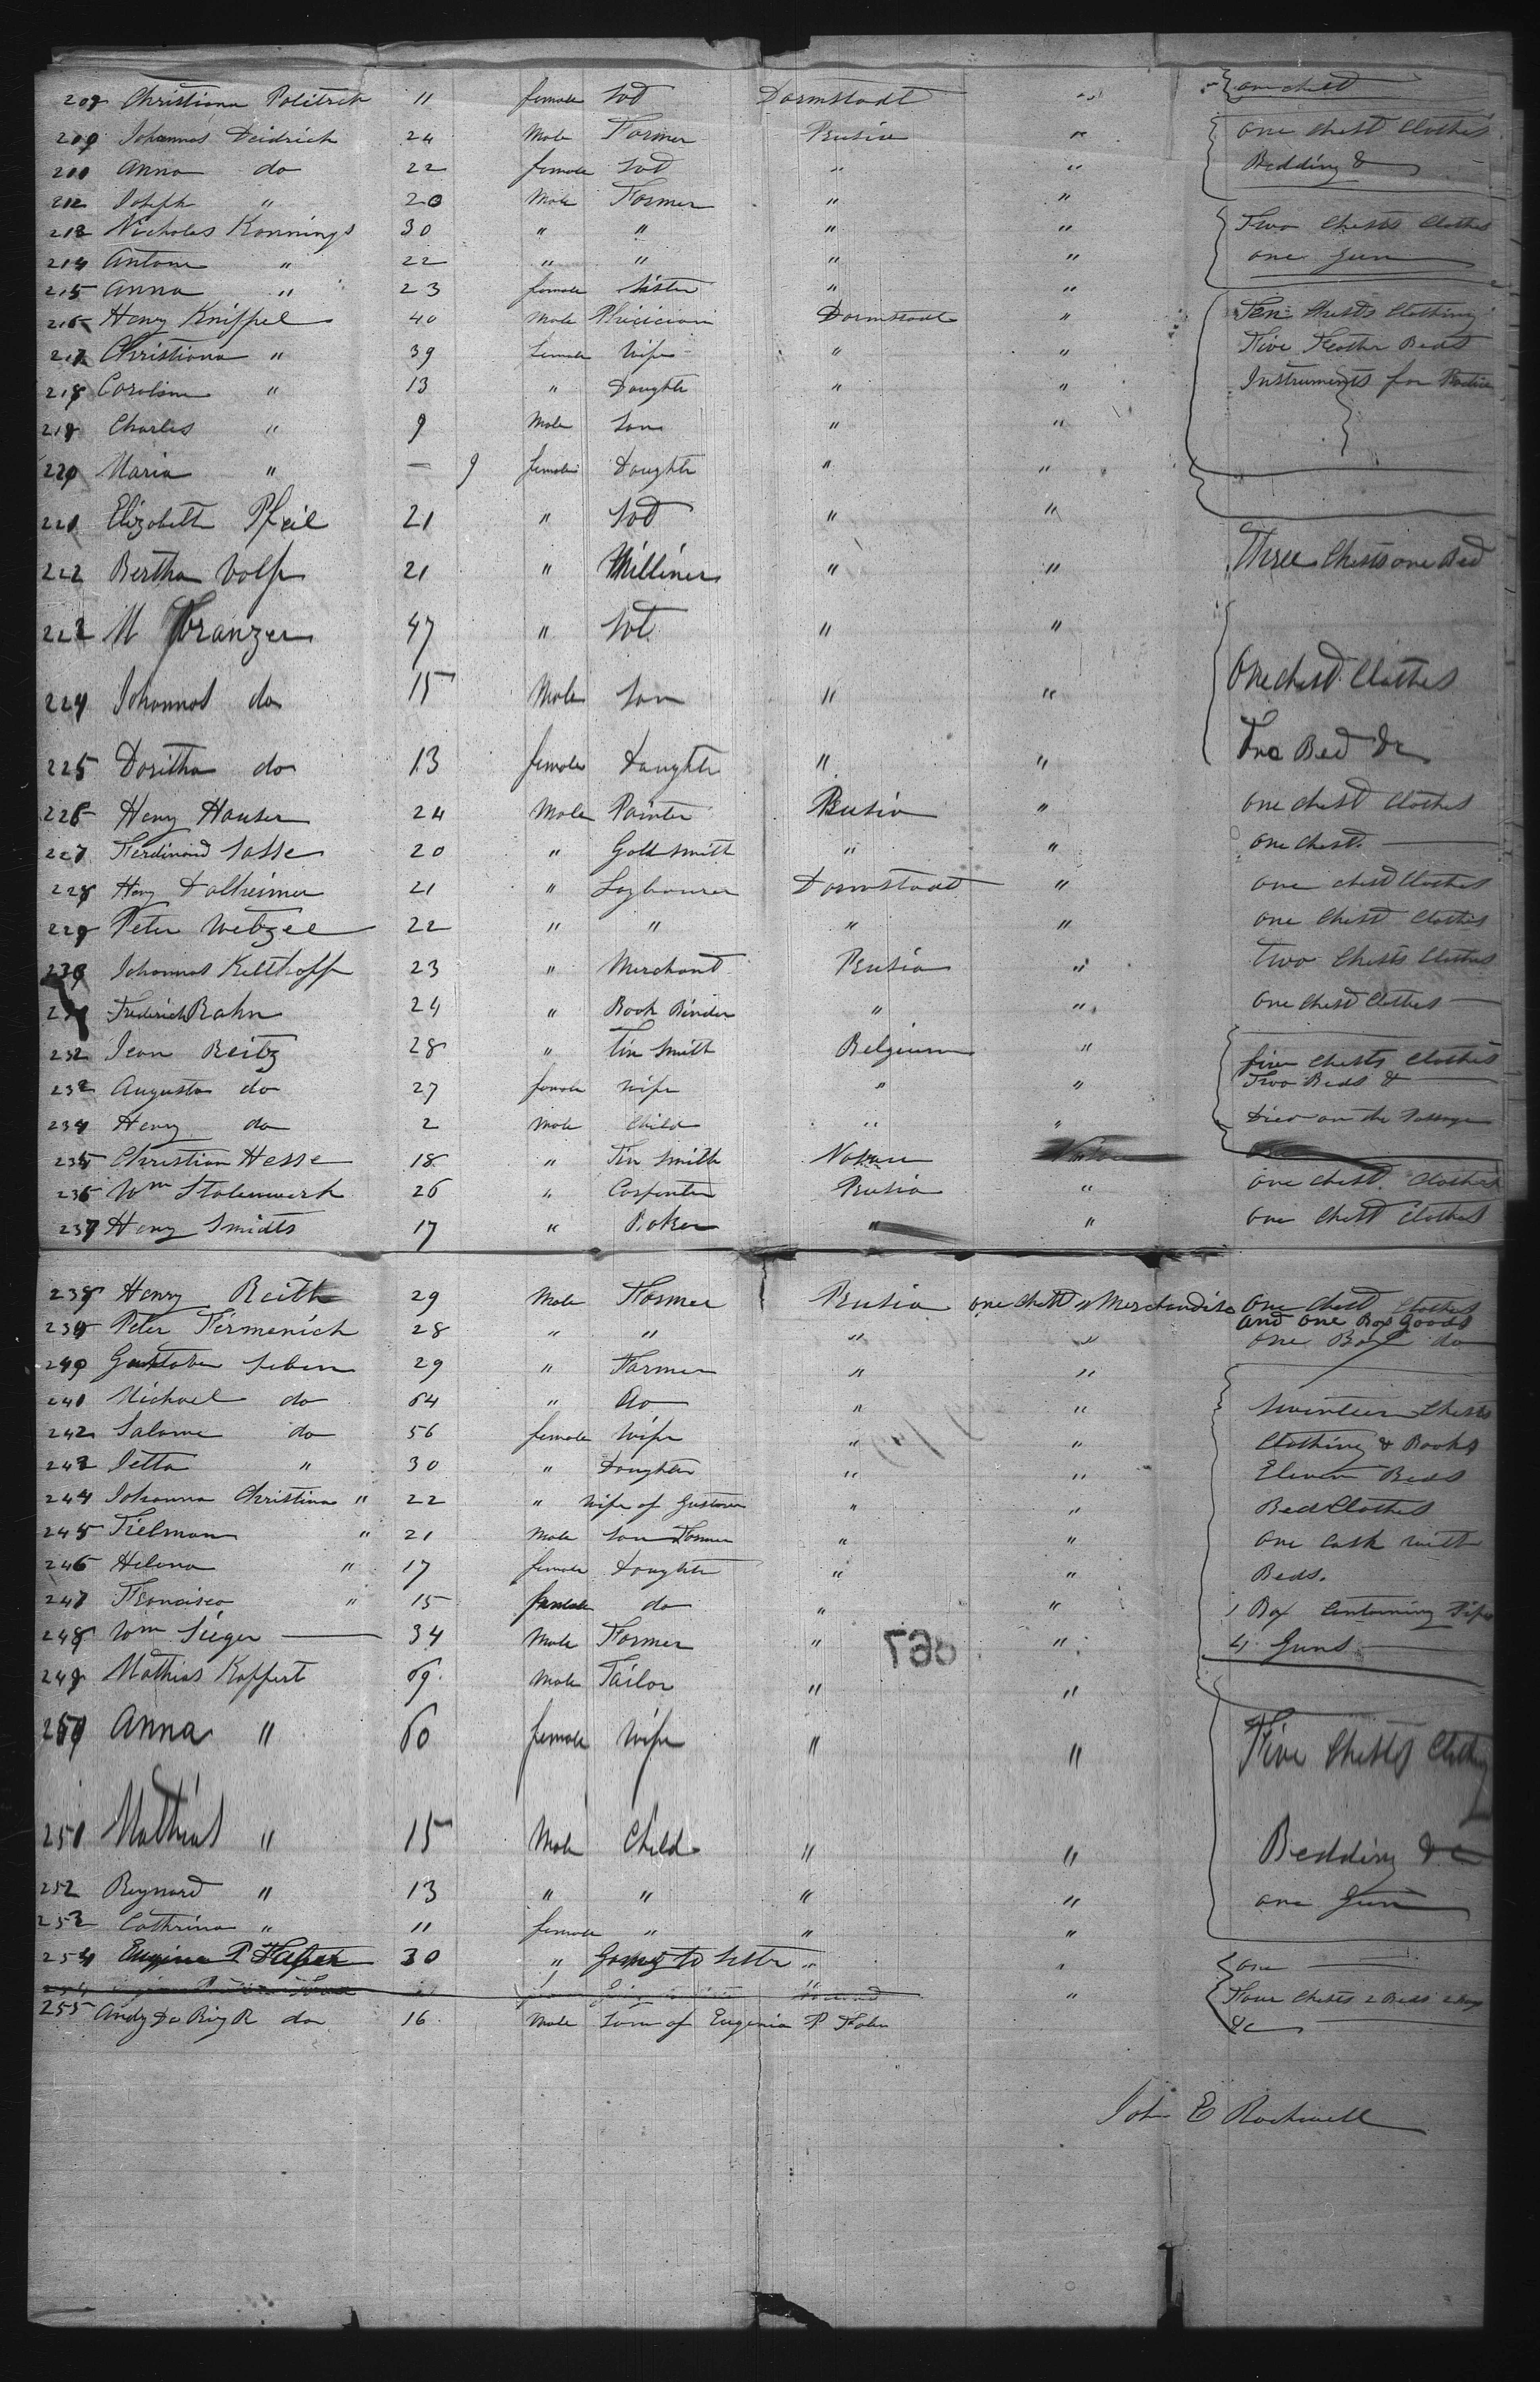 209 Christiana Politsch 11 female Sod Darmstadt " one chest
209 Johannes Deidrich 24 Male Farmer Prusia " one chest Clothes
210 Anna do 22 female Sod " " Bedding &
212 Joseph " 20 Male Farmer " "
213 Nicholas Konnings 30 " " " " Two Chests Clothes
214 Antone " 22 " " " " one Gun
215 Anna " 23 female Sister " "
216 Henry Kniffel 40 Male Phicician Darmstadt " Ten Chests Clothing
217 Christiana " 39 female Wife " " Five Feather Beds
218 Caroline " 13 " Daughter " " Instruments for
219 Charles " 9 Male Son " "
220 Maria " — 9 female Daughter " "
221 Elizabeth Pfeil 21 " Sod " "
222 Bertha Volf 21 " Milliner " " Three Chests one Bed
223 M Franzer 47 " Sod " "
224 Johannas do 15 Male Son " " One chest Clothes
225 Doritha do 13 female Daughter " " One Bed &c
226 Heny Hauser 24 Male Painter Prusia " one chest Clothes
227 Ferdinand Sasse 20 " Gold Smith " " one chest
228 Heny Dalheimer 21 " Laghourer Darmstadt " one chest Clothes
229 Peter Wetzel 22 " " " " one Chest Clothes
230 Johannas Kelthoff 23 " Merchant Prusia " Two Chests Clothes
231 Frederich Rahn 24 " Book Binder " " one Chest Clothes
232 Jean Reitz 28 " Tin Smith Belgium " five chests Clothes
233 Augusta do 27 female Wife " " Two Beds &
234 Heny do 2 Male Child " " Died on the Passage
235 Christian Hesse 18 " Tin Smith Nassau
236 Wm Stolenwerk 26 " Carpenter Prusia " one chest Clothes
237 Heny Smidts 17 " Baker " " one Chest Clothes
238 Henry Reith 29 Male Farmer Prusia one chest Merchandise One chest Clothes
and one Box Goods
239 Peter Firmenich 28 " " " " one Box do
240 Gustave Seben 29 " Farmer " "
241 Michael do 64 " do " " Seventeen Chests
242 Salome do 56 female Wife " " Clothing & Books
243 Jetta " 30 " Daughter " " Eleven Beds
244 Johanna Christina " 22 " Wife of Gustave " " Bed Clothes
245 Tielman " 21 Male Son Farmer " " one Cask with
246 Helena " 17 female Daughter " " Beds.
247 Francisca " 15 female do " " 1 Box Containing
248 Wm Sieger 34 Male Farmer " " 4 Guns
249 Mathias Koppert 69 Male Tailor " "
250 Anna " 60 female Wife " " Five Chests Clothing
251 Mathias " 15 Male Child " " Bedding &c
252 Reynard " 13 " " " " one Gun
253 Cathrina " 11 female " " "
254 Eugina P 30 " Going to Sister " " one
255 Andy R do 16 Male Son of Eugenia P " Four Chests 2 Beds
&c
John E Rockwell